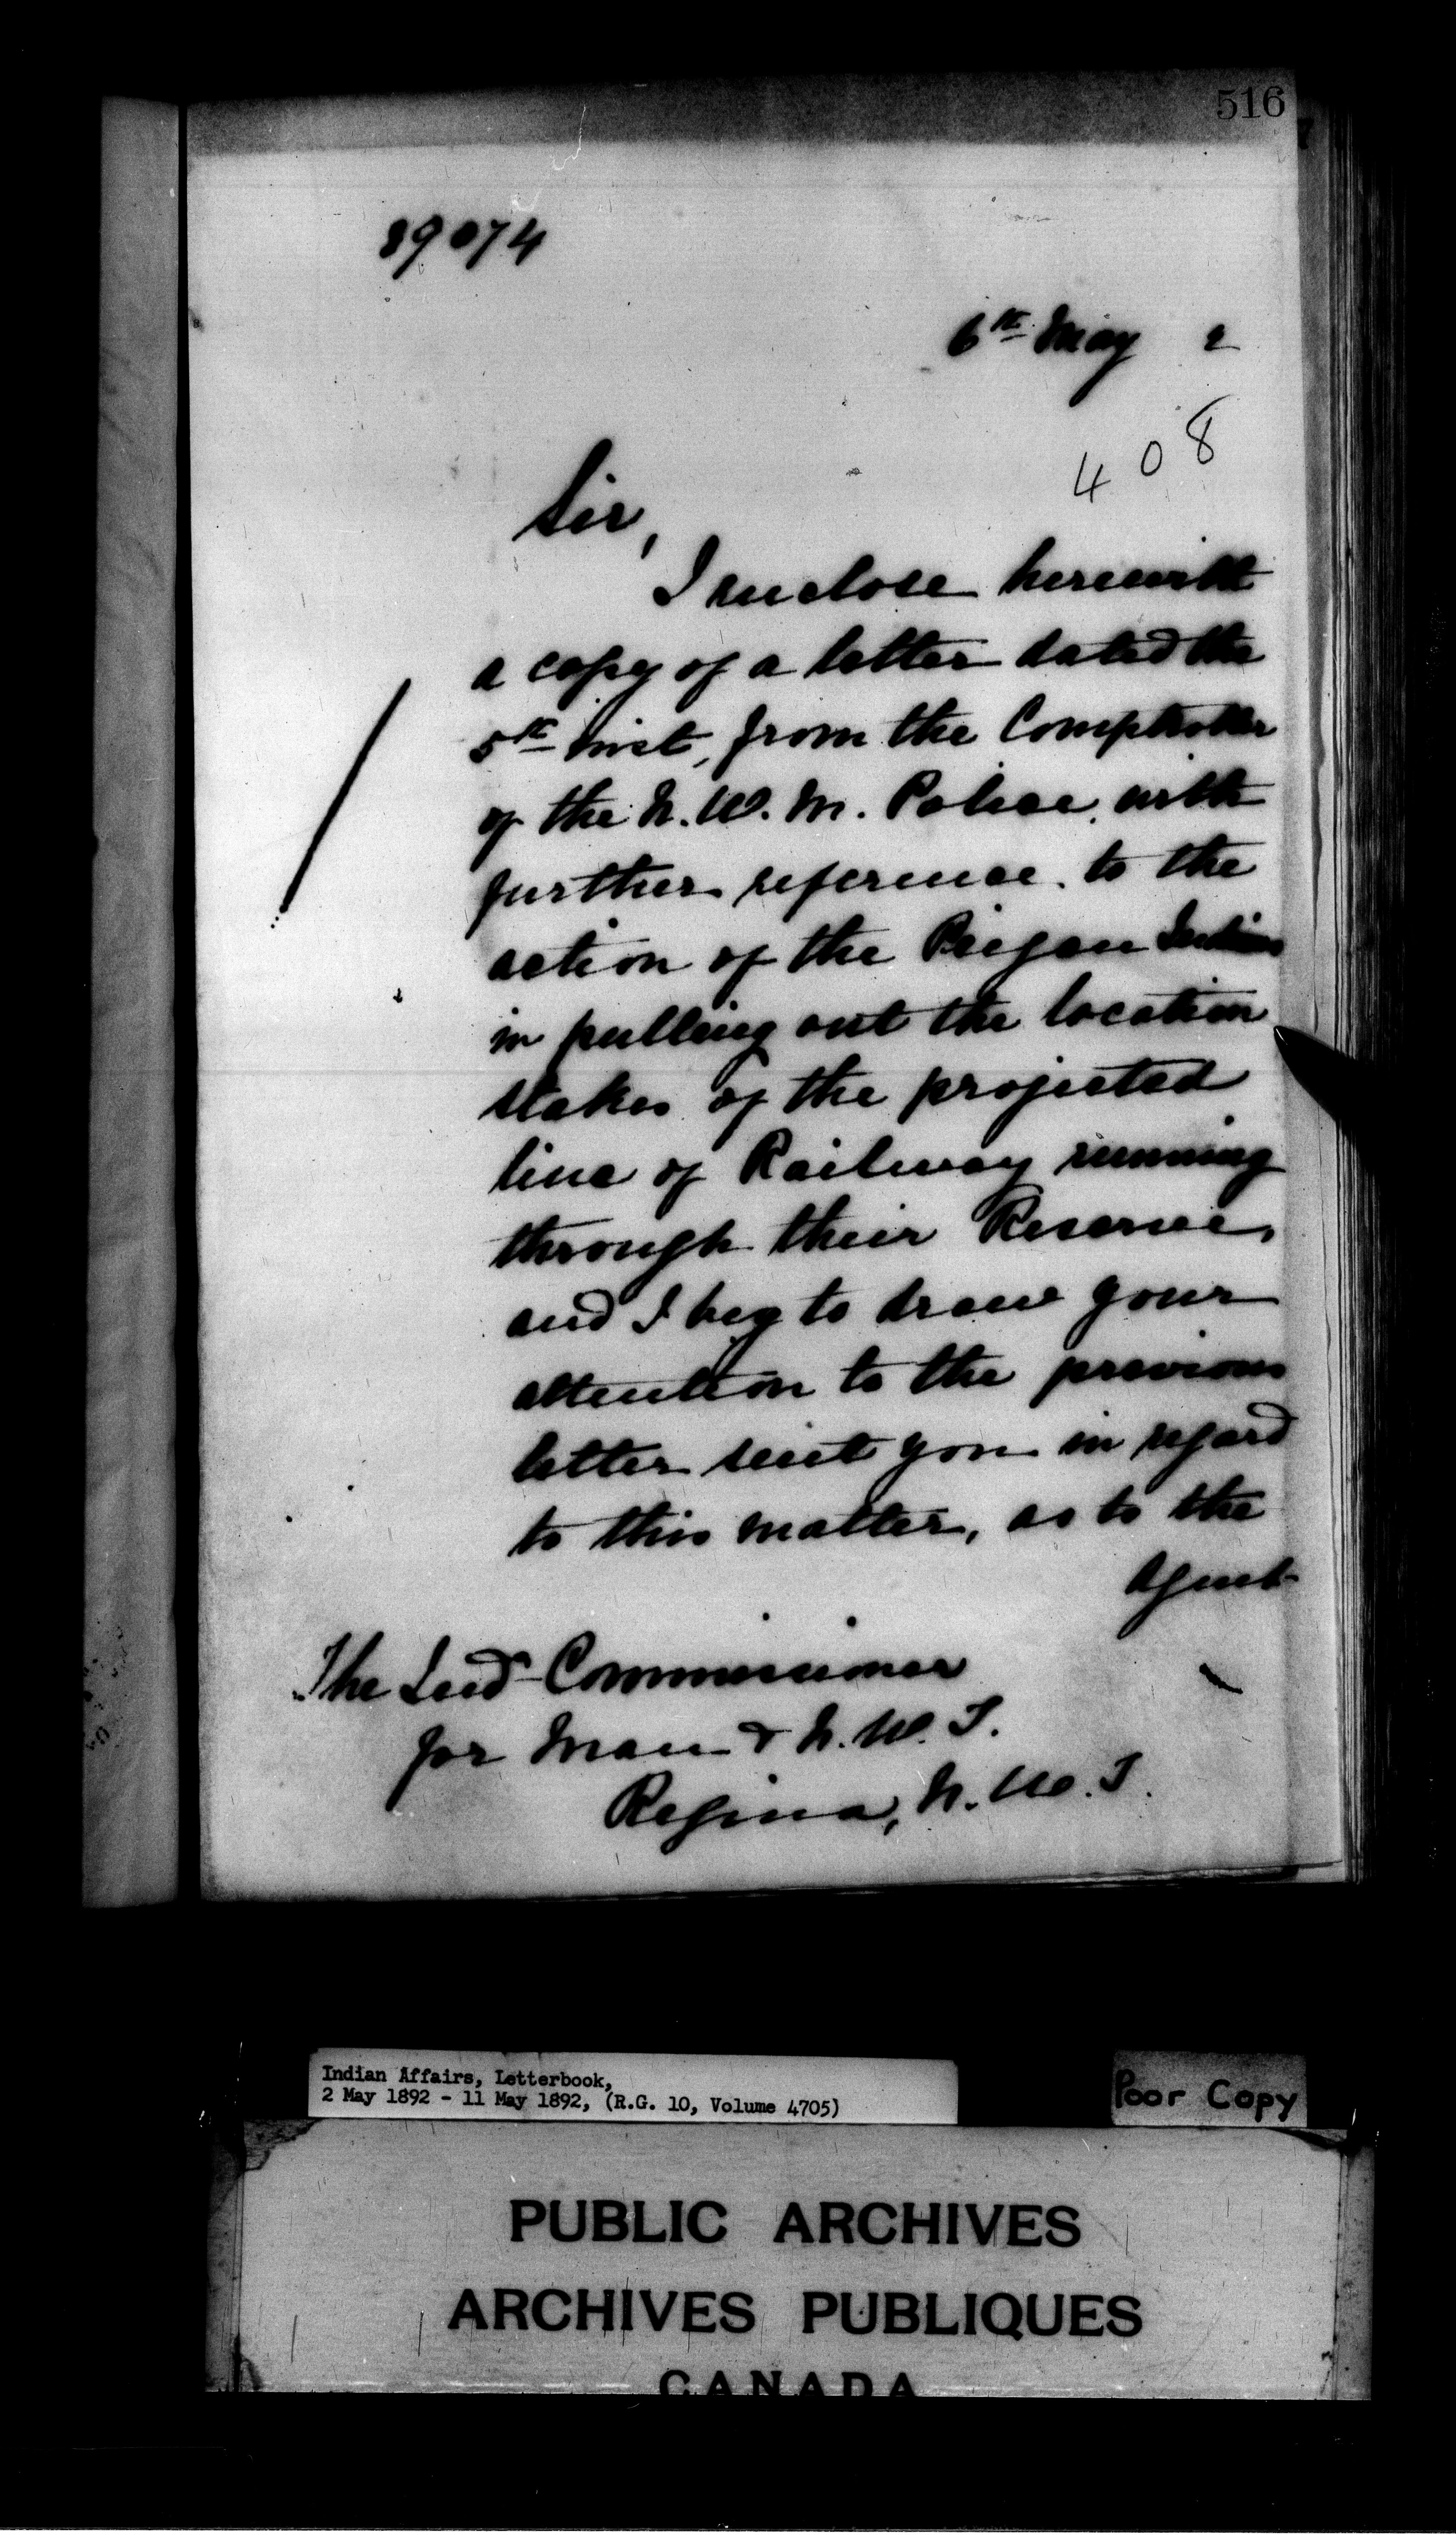 516
89074
6th May 2
408
Sir,
I enclose herewith
a copy of a letter dated the
5th inst, from the Comptroller
of the N. W. M. Police, with
further reference to the
action of the Piegan Indians
in pulling out the location
stakes of the projected
line of Railway running
through their Reserve,
and I beg to draw your
attention to the previous
letter sent you in regard
to this matter, as to the
Agent
The Indn Commissioner
for Man & N. W. T.
Regina, N. W. T.
Indian Affairs, Letterbook,
2 May 1892 - 11 May 1892, (R.G. 10, Volume 4705)
Poor Copy
PUBLIC ARCHIVES
ARCHIVES PUBLIQUES
CANADA